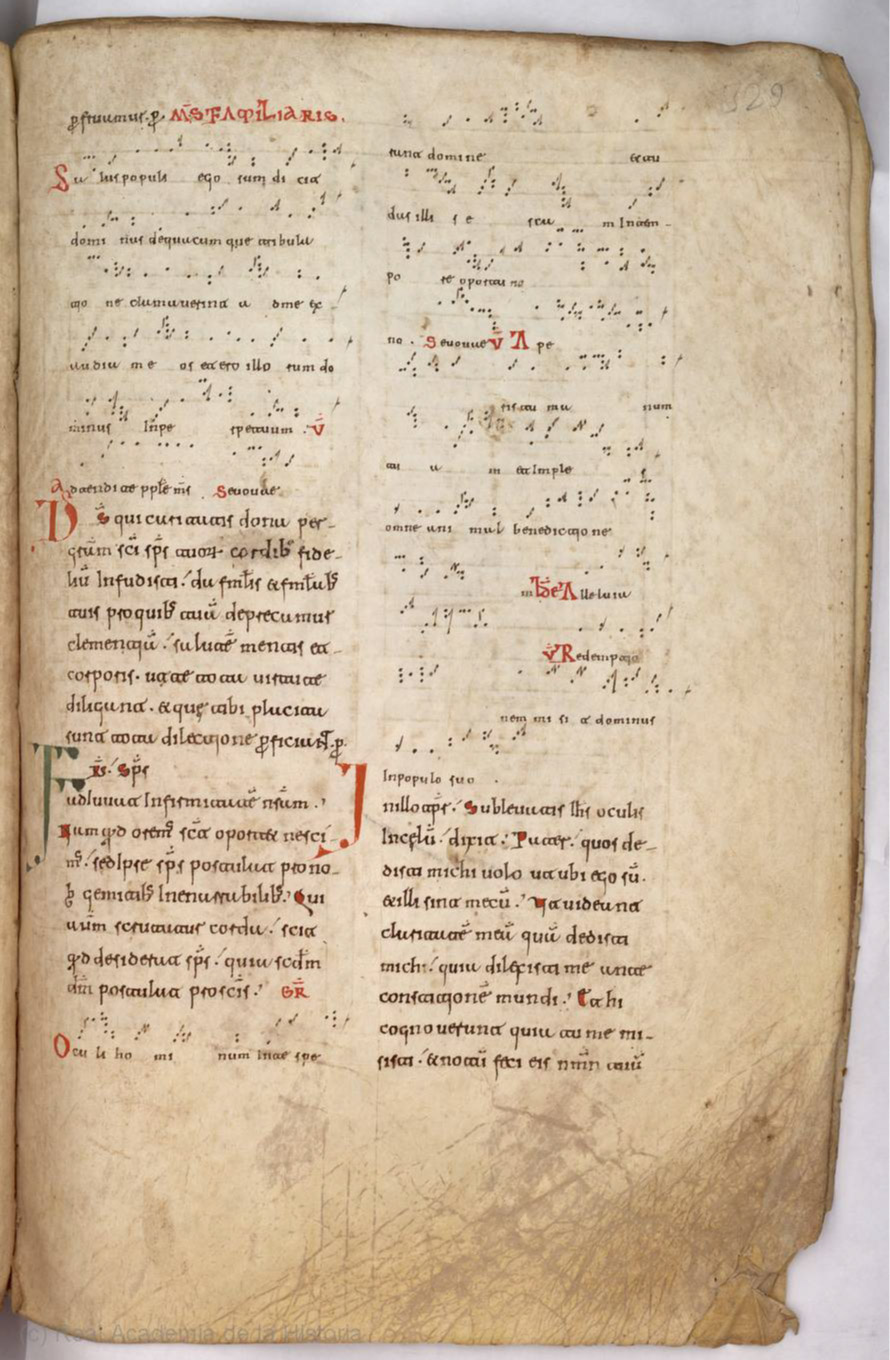 ꝑfruumur. ꝑ. MS̄ FAMILIARIS.
Salus populi ego sum dicit
dominus dequacumque tribula
tio ne clamauerint a dme ex
audia me os et ero illo rum do
minus Inpe rpetuum . V̄
Adtendite pple m̄s Seuouae
D S̄ qui caritatis dona per
gr̄am sc̄i sp̄s tuor cordib; fide
liū Infudisti. da fm̄lis & fm̄lab;
tuis pro quib; tuā deprecamur
clementiā. salutē mentis et
corporis. ut te tota uirtute
diligant. & quę tibi placita
sunt tota dilectione ꝑficiant. ꝑ.
Frs̄. Sp̄s
adiuuat Infirmitatē nr̄am.
Nam qd orem̄ sc̄d oportet nesci
m̄. sed Ipse sp̄s postulat pro no
b̄ gemitib; Inenarrabilib;. Qui
aūm scrutatur corda. scit
qd desiderat sp̄s. quia scdm
dm̄ postulat pro sc̄is. GR̄
Ocu li ho mi num Inte spe
rant domine et tu
das illi s e sca m Intem
po re oportu no
no . Seuouae V̄ A pe
ris tu ma num
tu a m et Imple
omne ani mal benedictione
m Alleluia
V̄ Redemptio
nem mi si t dominus
Inpopulo suo .
I nillo tp̄r. Subleuatis Ihs oculis
Incęlū. dixit. Pater. quos de
disti michi uolo ut ubi ego sū.
& illi sint mecū. Ut uideant
claritatē meā quā dedisti
michi. quia dilexisti me ante
constitutionē mundi. Et hi
cognouerunt quia tu me mi
sisti. & notū feci eis nm̄n tuū
129
(c) Real Academia de la Historia